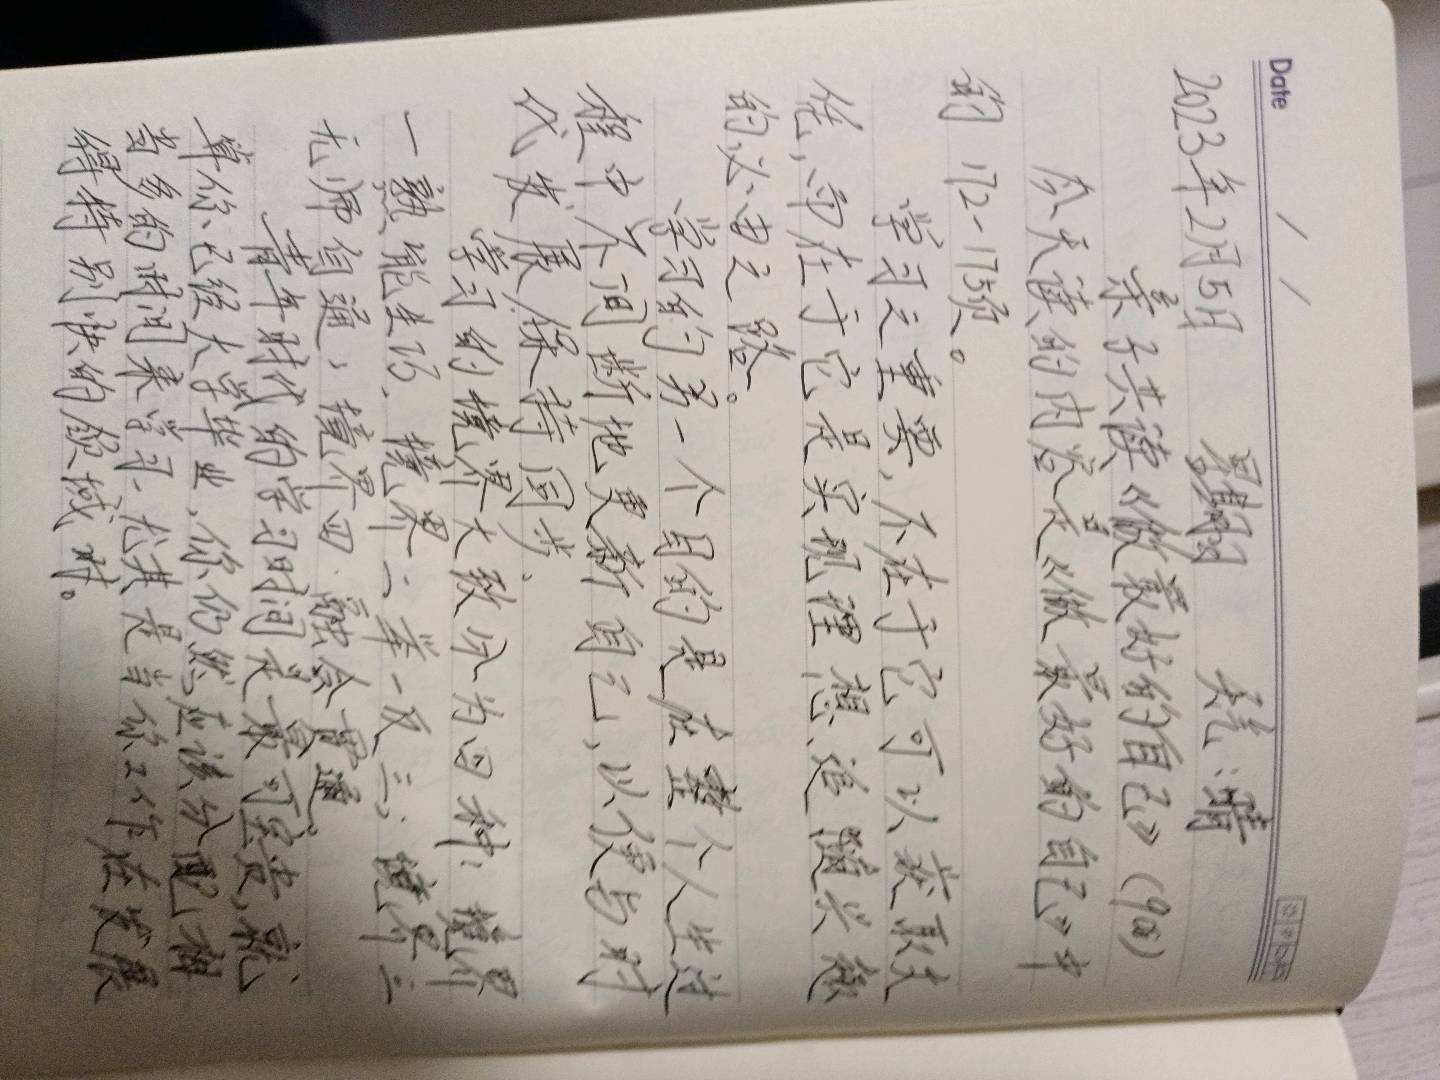 Date / /
2023年2月5日 星期日 天气:晴
亲子共读《做最好的自己》(90)
今天读的内容是《做最好的自己》中
的172-175页。
学习之重要,不在于它可以获取技
能,而在于它是实现理想、追随兴趣
的必由之路。
学习的另一个目的是在整个人生过
程中不间断地更新自己,以便与时
代发展保持同步、
学习的境界大致分为四种:境界
一熟能生巧、境界二举一反三、境界三
无师自通,境界四.融会贯通。
青年时代的学习时间是最可宝贵,就
算你已经大学毕业,你仍然应该分配相
当多的时间来学习.尤其是当你工作在发展
得特别快的领域时。